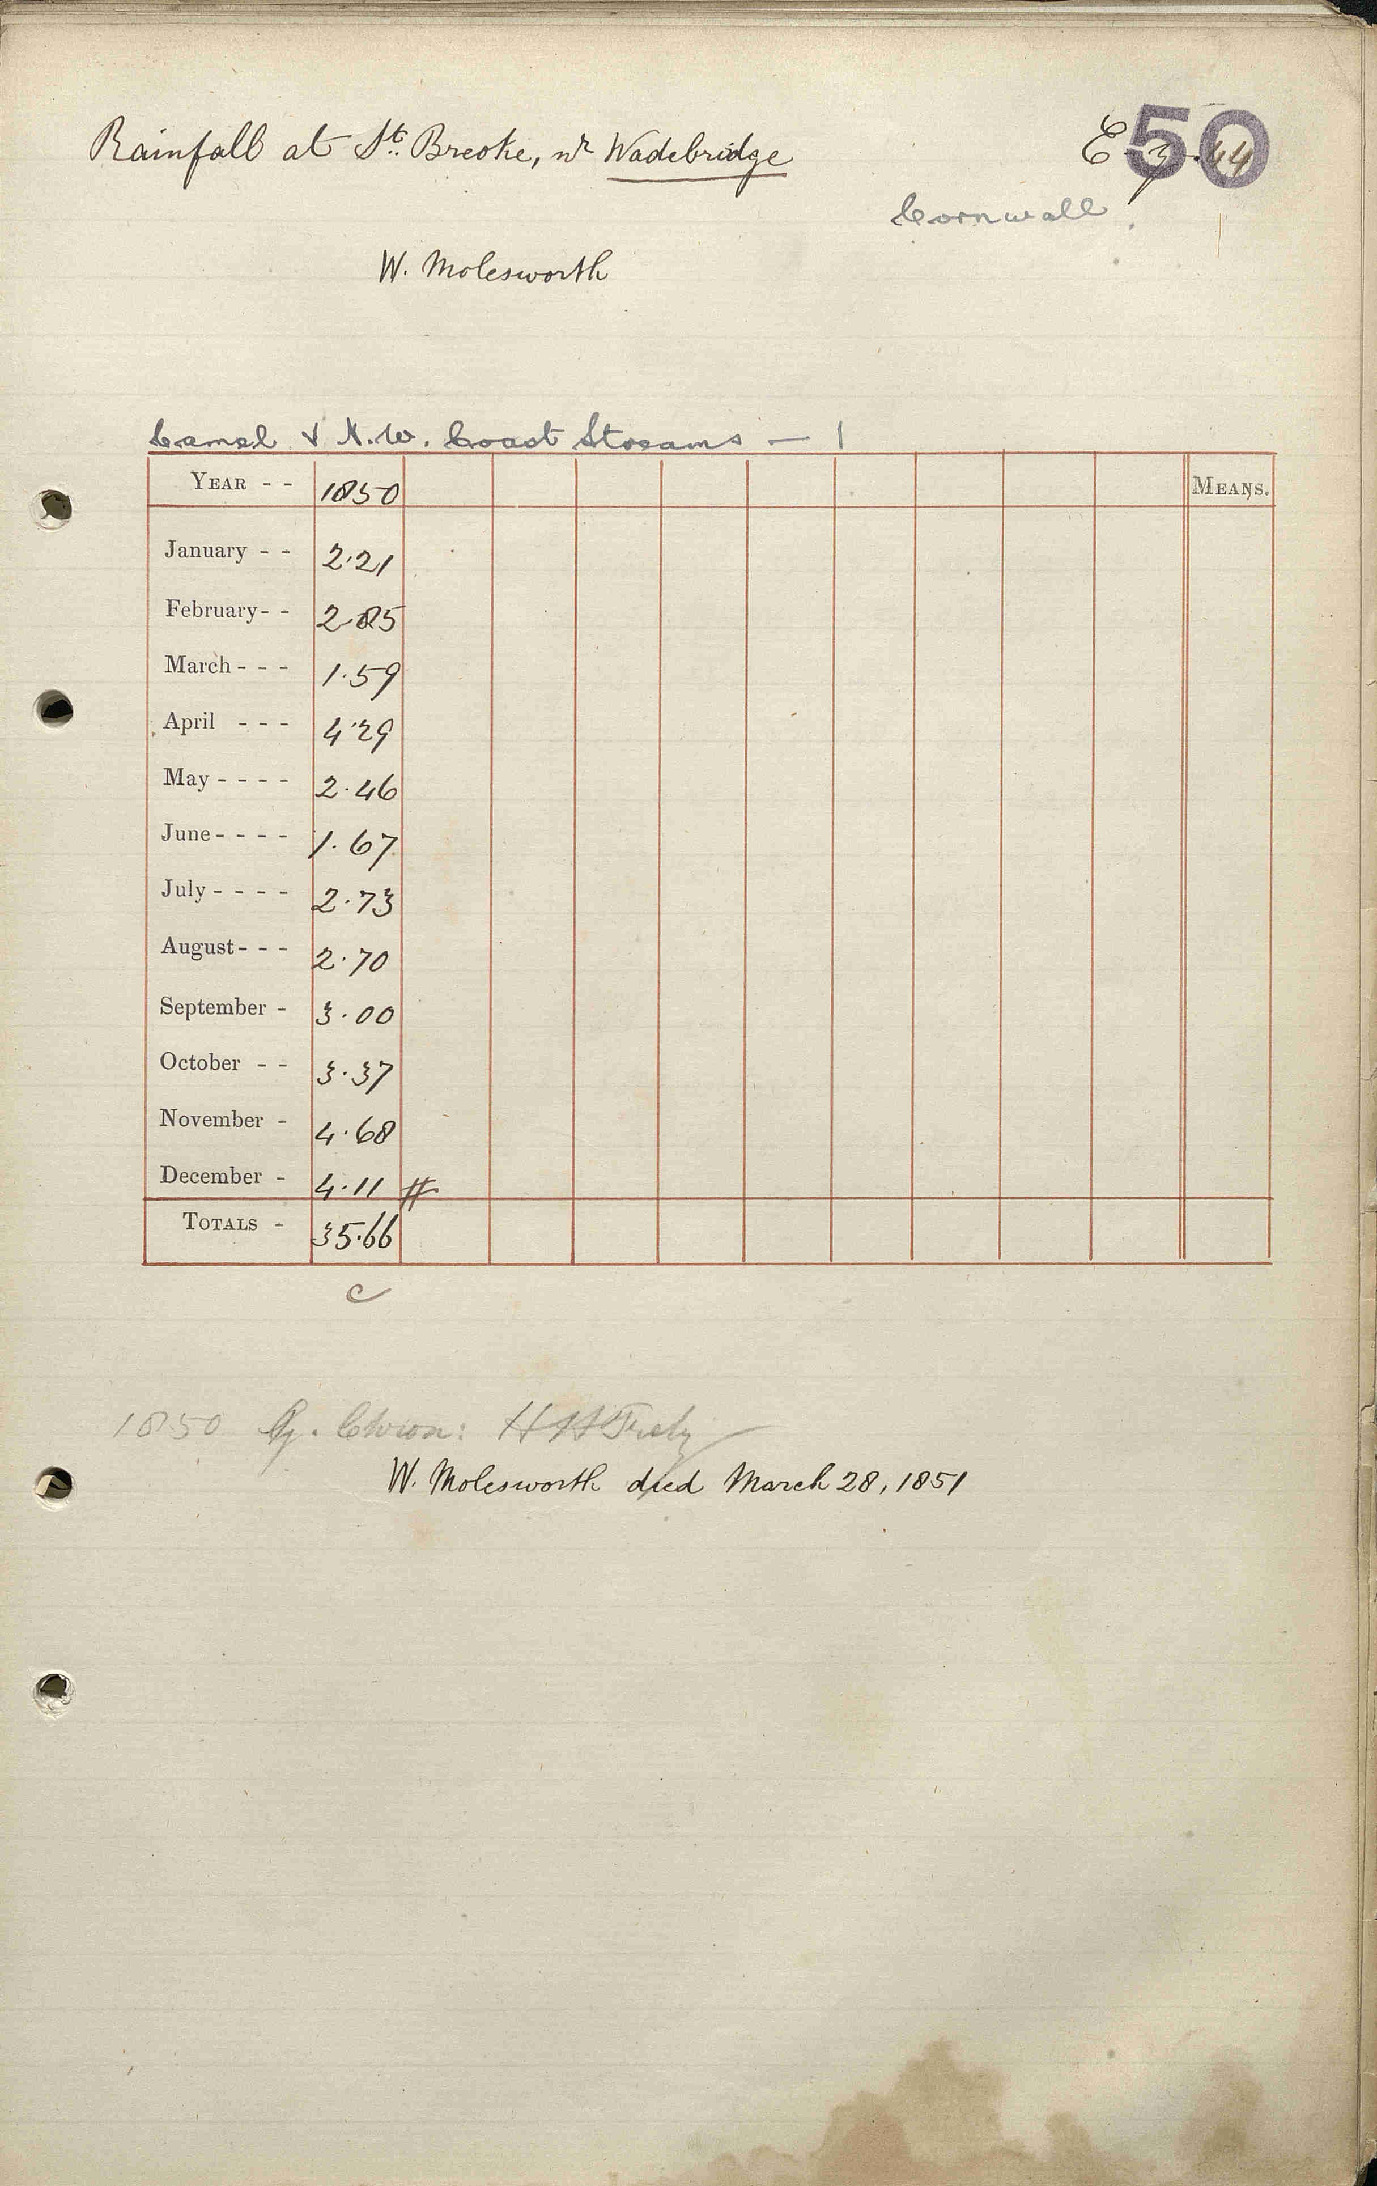 Rainfall at St. Breoke, nr Wadebridge
E 50
Cornwall
W. Molesworth
Camel & N.W. Coast Streams — 1
YEAR - - 1850 MEANS.
January - - 2.21
February - - 2.85
March - - - 1.59
April - - - 4.29
May - - - - 2.46
June - - - - 1.67
July - - - - 2.73
August - - - 2.70
September - 3.00
October - - 3.37
November - 4.68
December - 4.11 #
TOTALS - 35.66
c
1850
W. Molesworth died March 28, 1851